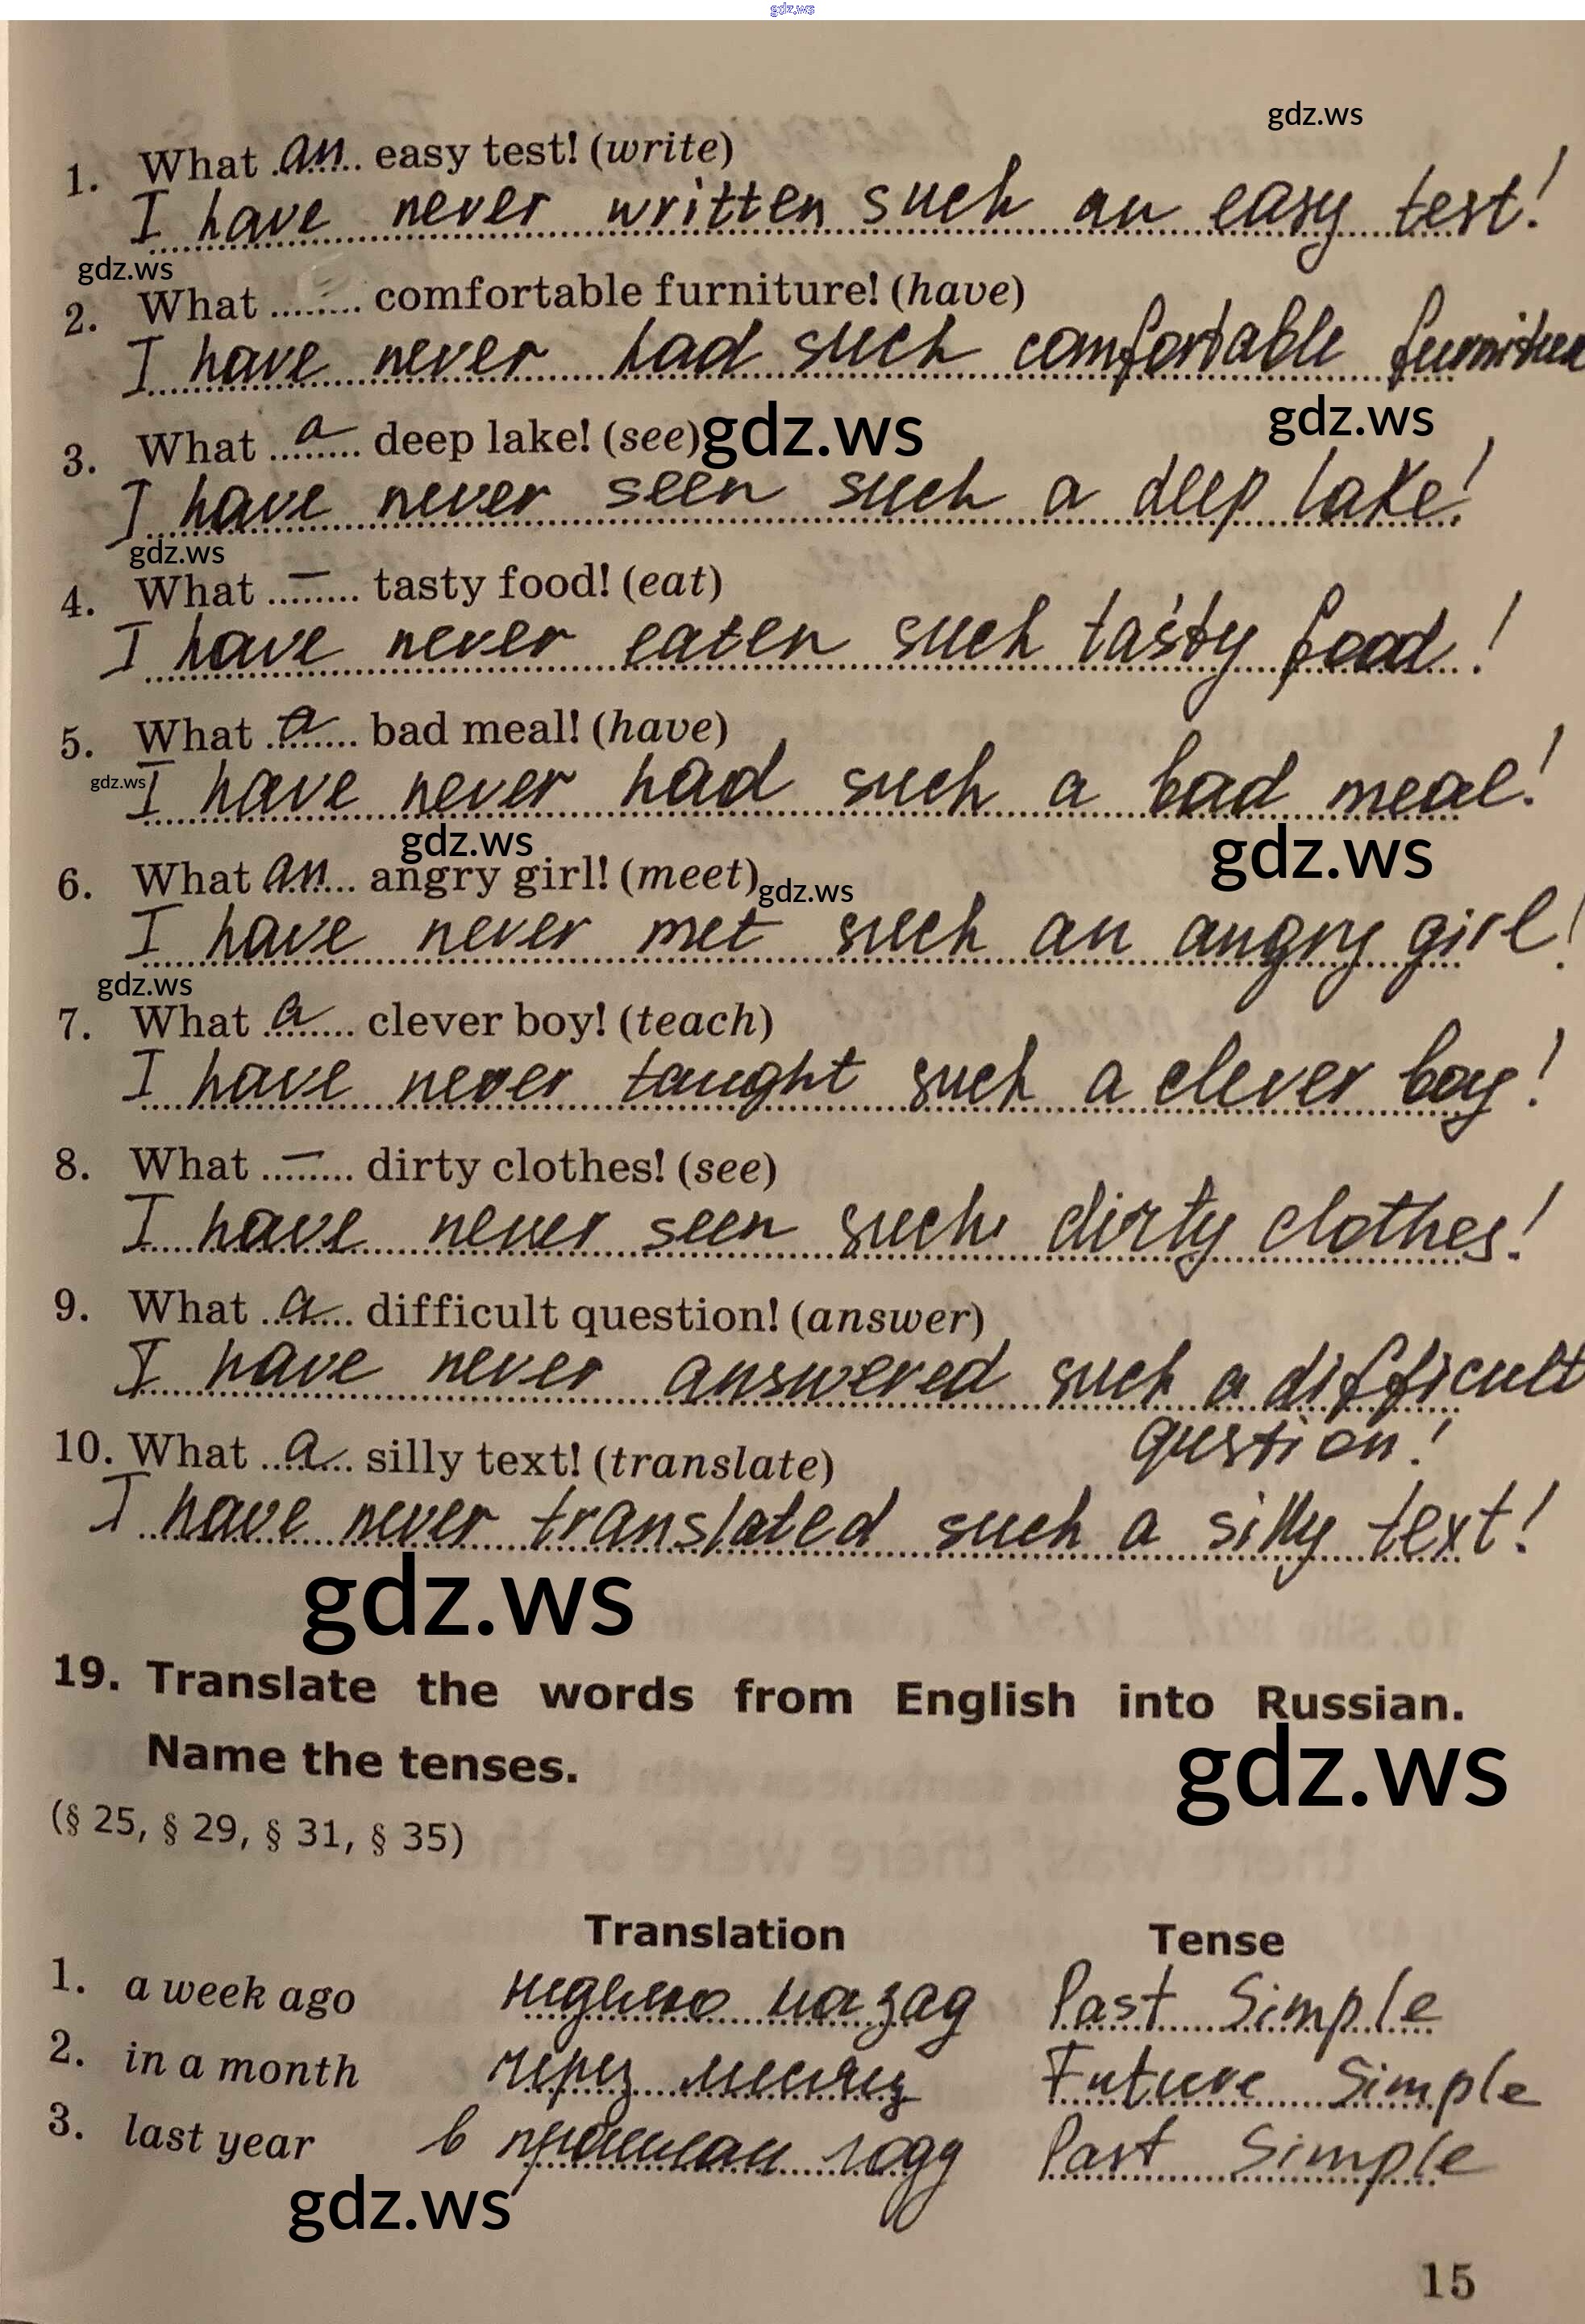 gdz.ws
gdz.ws
1. What ..an.. easy test! (write)
I have never written such an easy test!
gdz.ws
2. What ........ comfortable furniture! (have)
I have never had such comfortable furniture
3. What ...a... deep lake! (see)
gdz.ws
gdz.ws
I have never seen such a deep lake!
gdz.ws
4. What ...—... tasty food! (eat)
I have never eaten such tasty food!
5. What ...a... bad meal! (have)
gdz.ws
I have never had such a bad meal!
gdz.ws
gdz.ws
6. What an... angry girl! (meet)
gdz.ws
I have never met such an angry girl!
gdz.ws
7. What ...a... clever boy! (teach)
I have never taught such a clever boy!
8. What ...—... dirty clothes! (see)
I have never seen such dirty clothes!
9. What ...a... difficult question! (answer)
I have never answered such a difficult
question!
10. What ...a... silly text! (translate)
I have never translated such a silly text!
gdz.ws
19. Translate the words from English into Russian.
Name the tenses.
gdz.ws
(§ 25, § 29, § 31, § 35)
Translation Tense
1. a week ago неделю назад Past Simple
2. in a month через месяц Future Simple
3. last year в прошлом году Past Simple
gdz.ws
15